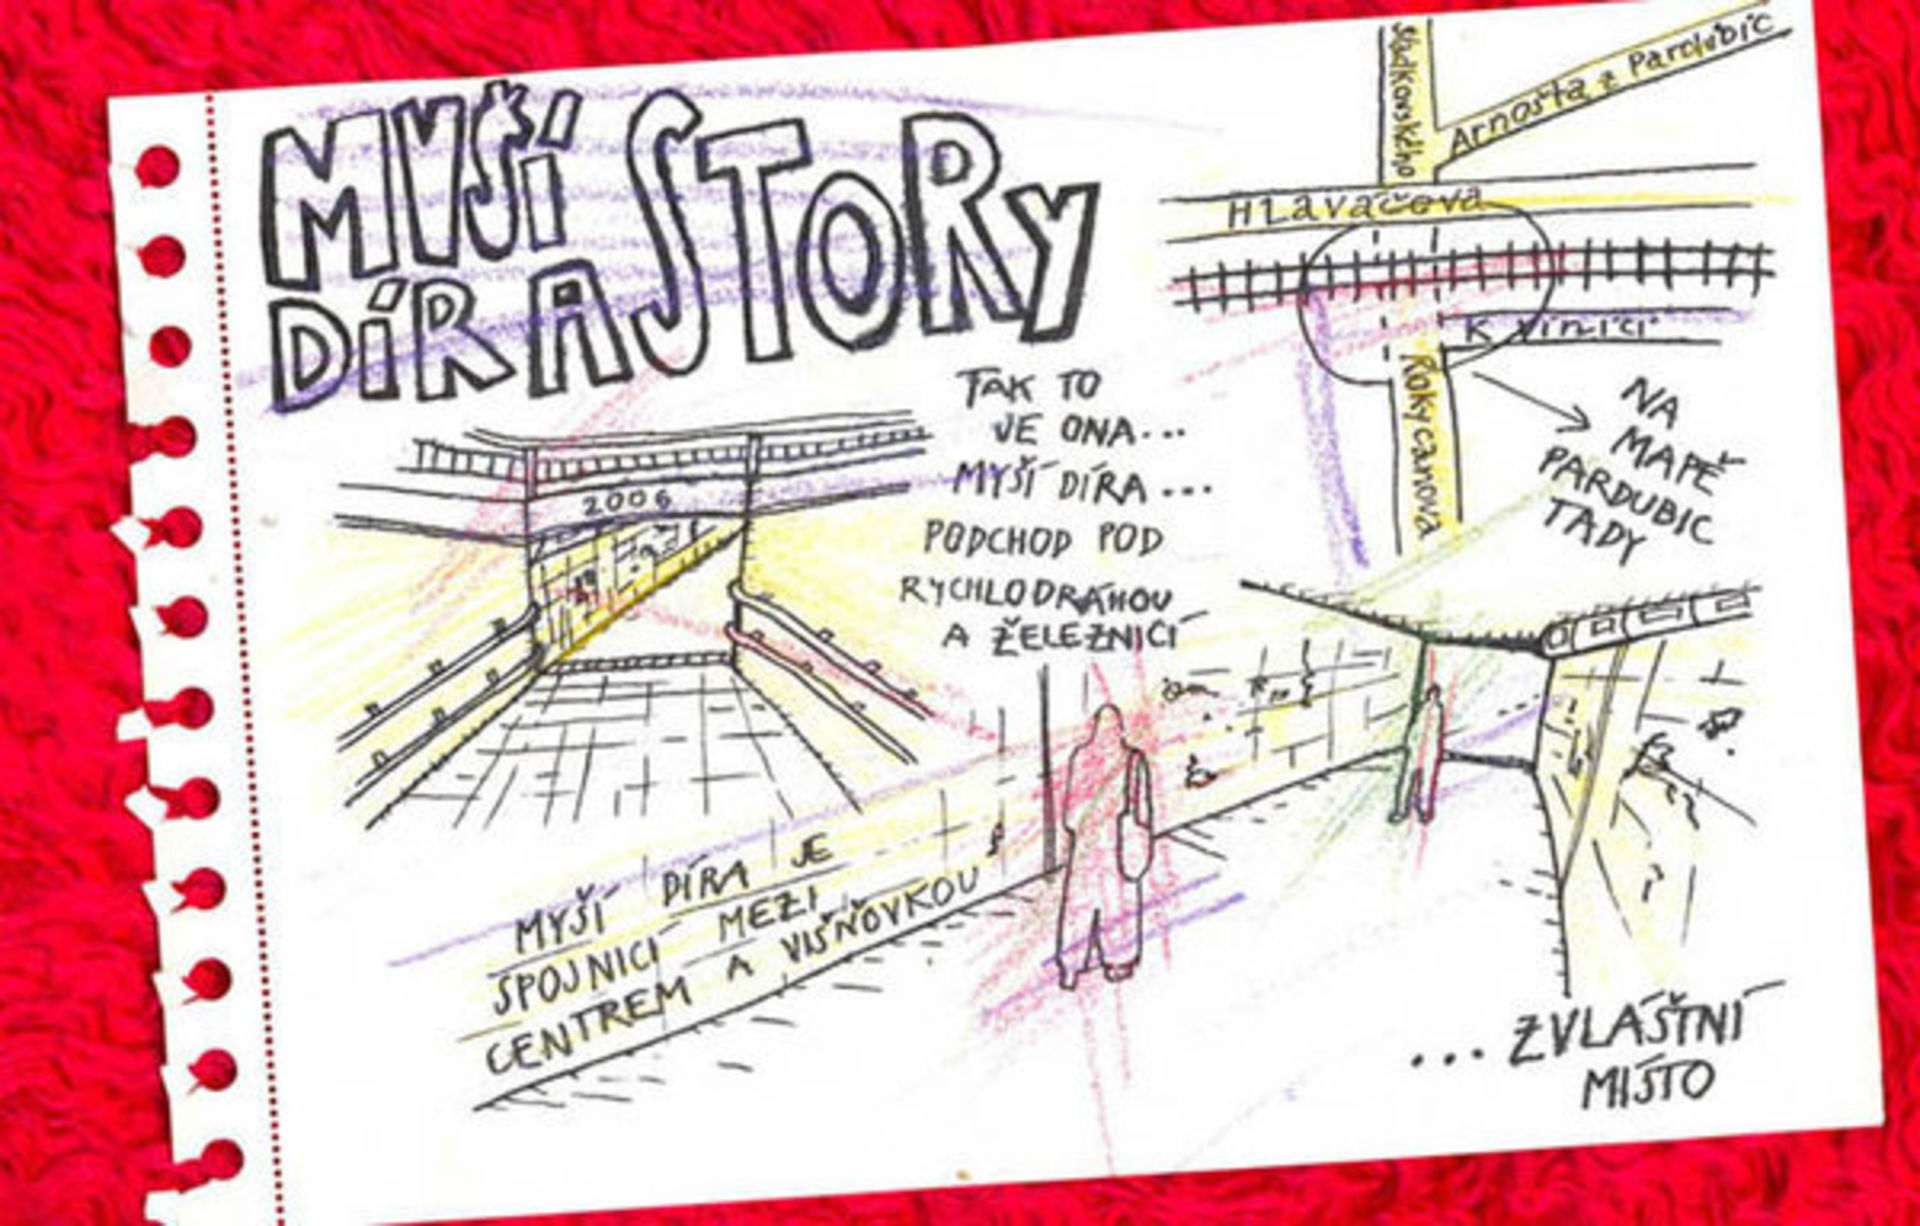 MYŠÍ
DÍRA STORY
Sladkovského
Arnošta z Pardubic
Hlaváčova
K Vinici
Rokycanova
NA
MAPĚ
PARDUBIC
TADY
TAK TO
JE ONA...
MYŠÍ DÍRA...
PODCHOD POD
RYCHLODRÁHOU
A ŽELEZNICÍ
2006
MYŠÍ DÍRA JE
SPOJNICÍ MEZI
CENTREM A VIŠŇOVKOU
...ZVLÁŠTNÍ
MÍSTO